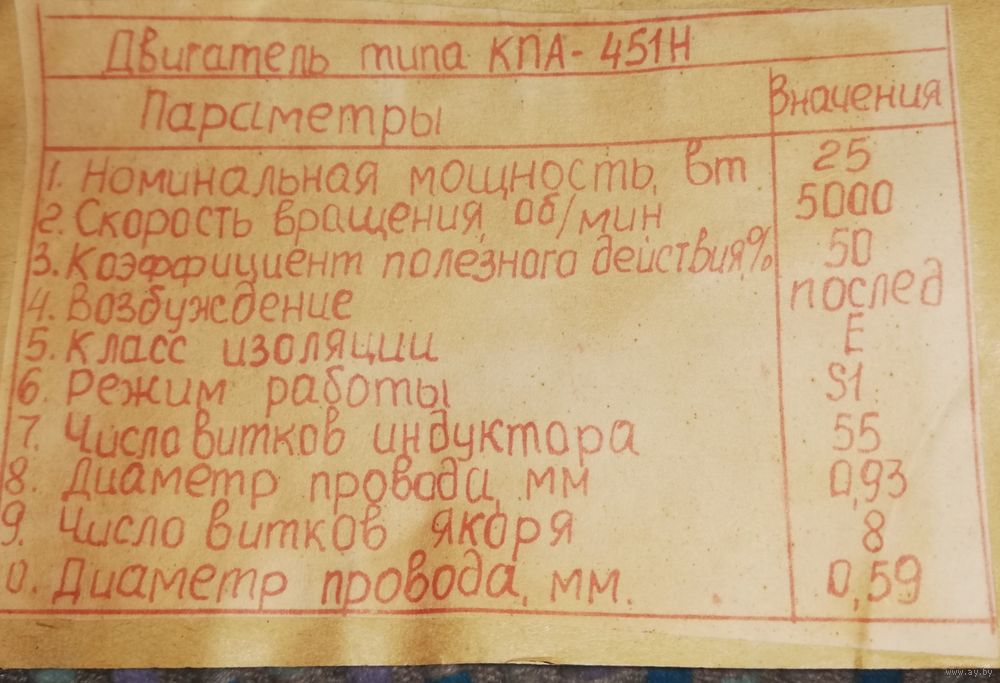 Двигатель типа КПА-451Н
Параметры Значения
1. Номинальная мощность, вт 25
2. Скорость вращения, об/мин 5000
3. Коэффициент полезного действия,% 50
4. Возбуждение послед
5. Класс изоляции Е
6. Режим работы S1
7. Число витков индуктора 55
8. Диаметр провода, мм 0,93
9. Число витков якоря 8
0. Диаметр провода, мм. 0,59
www.ay.by